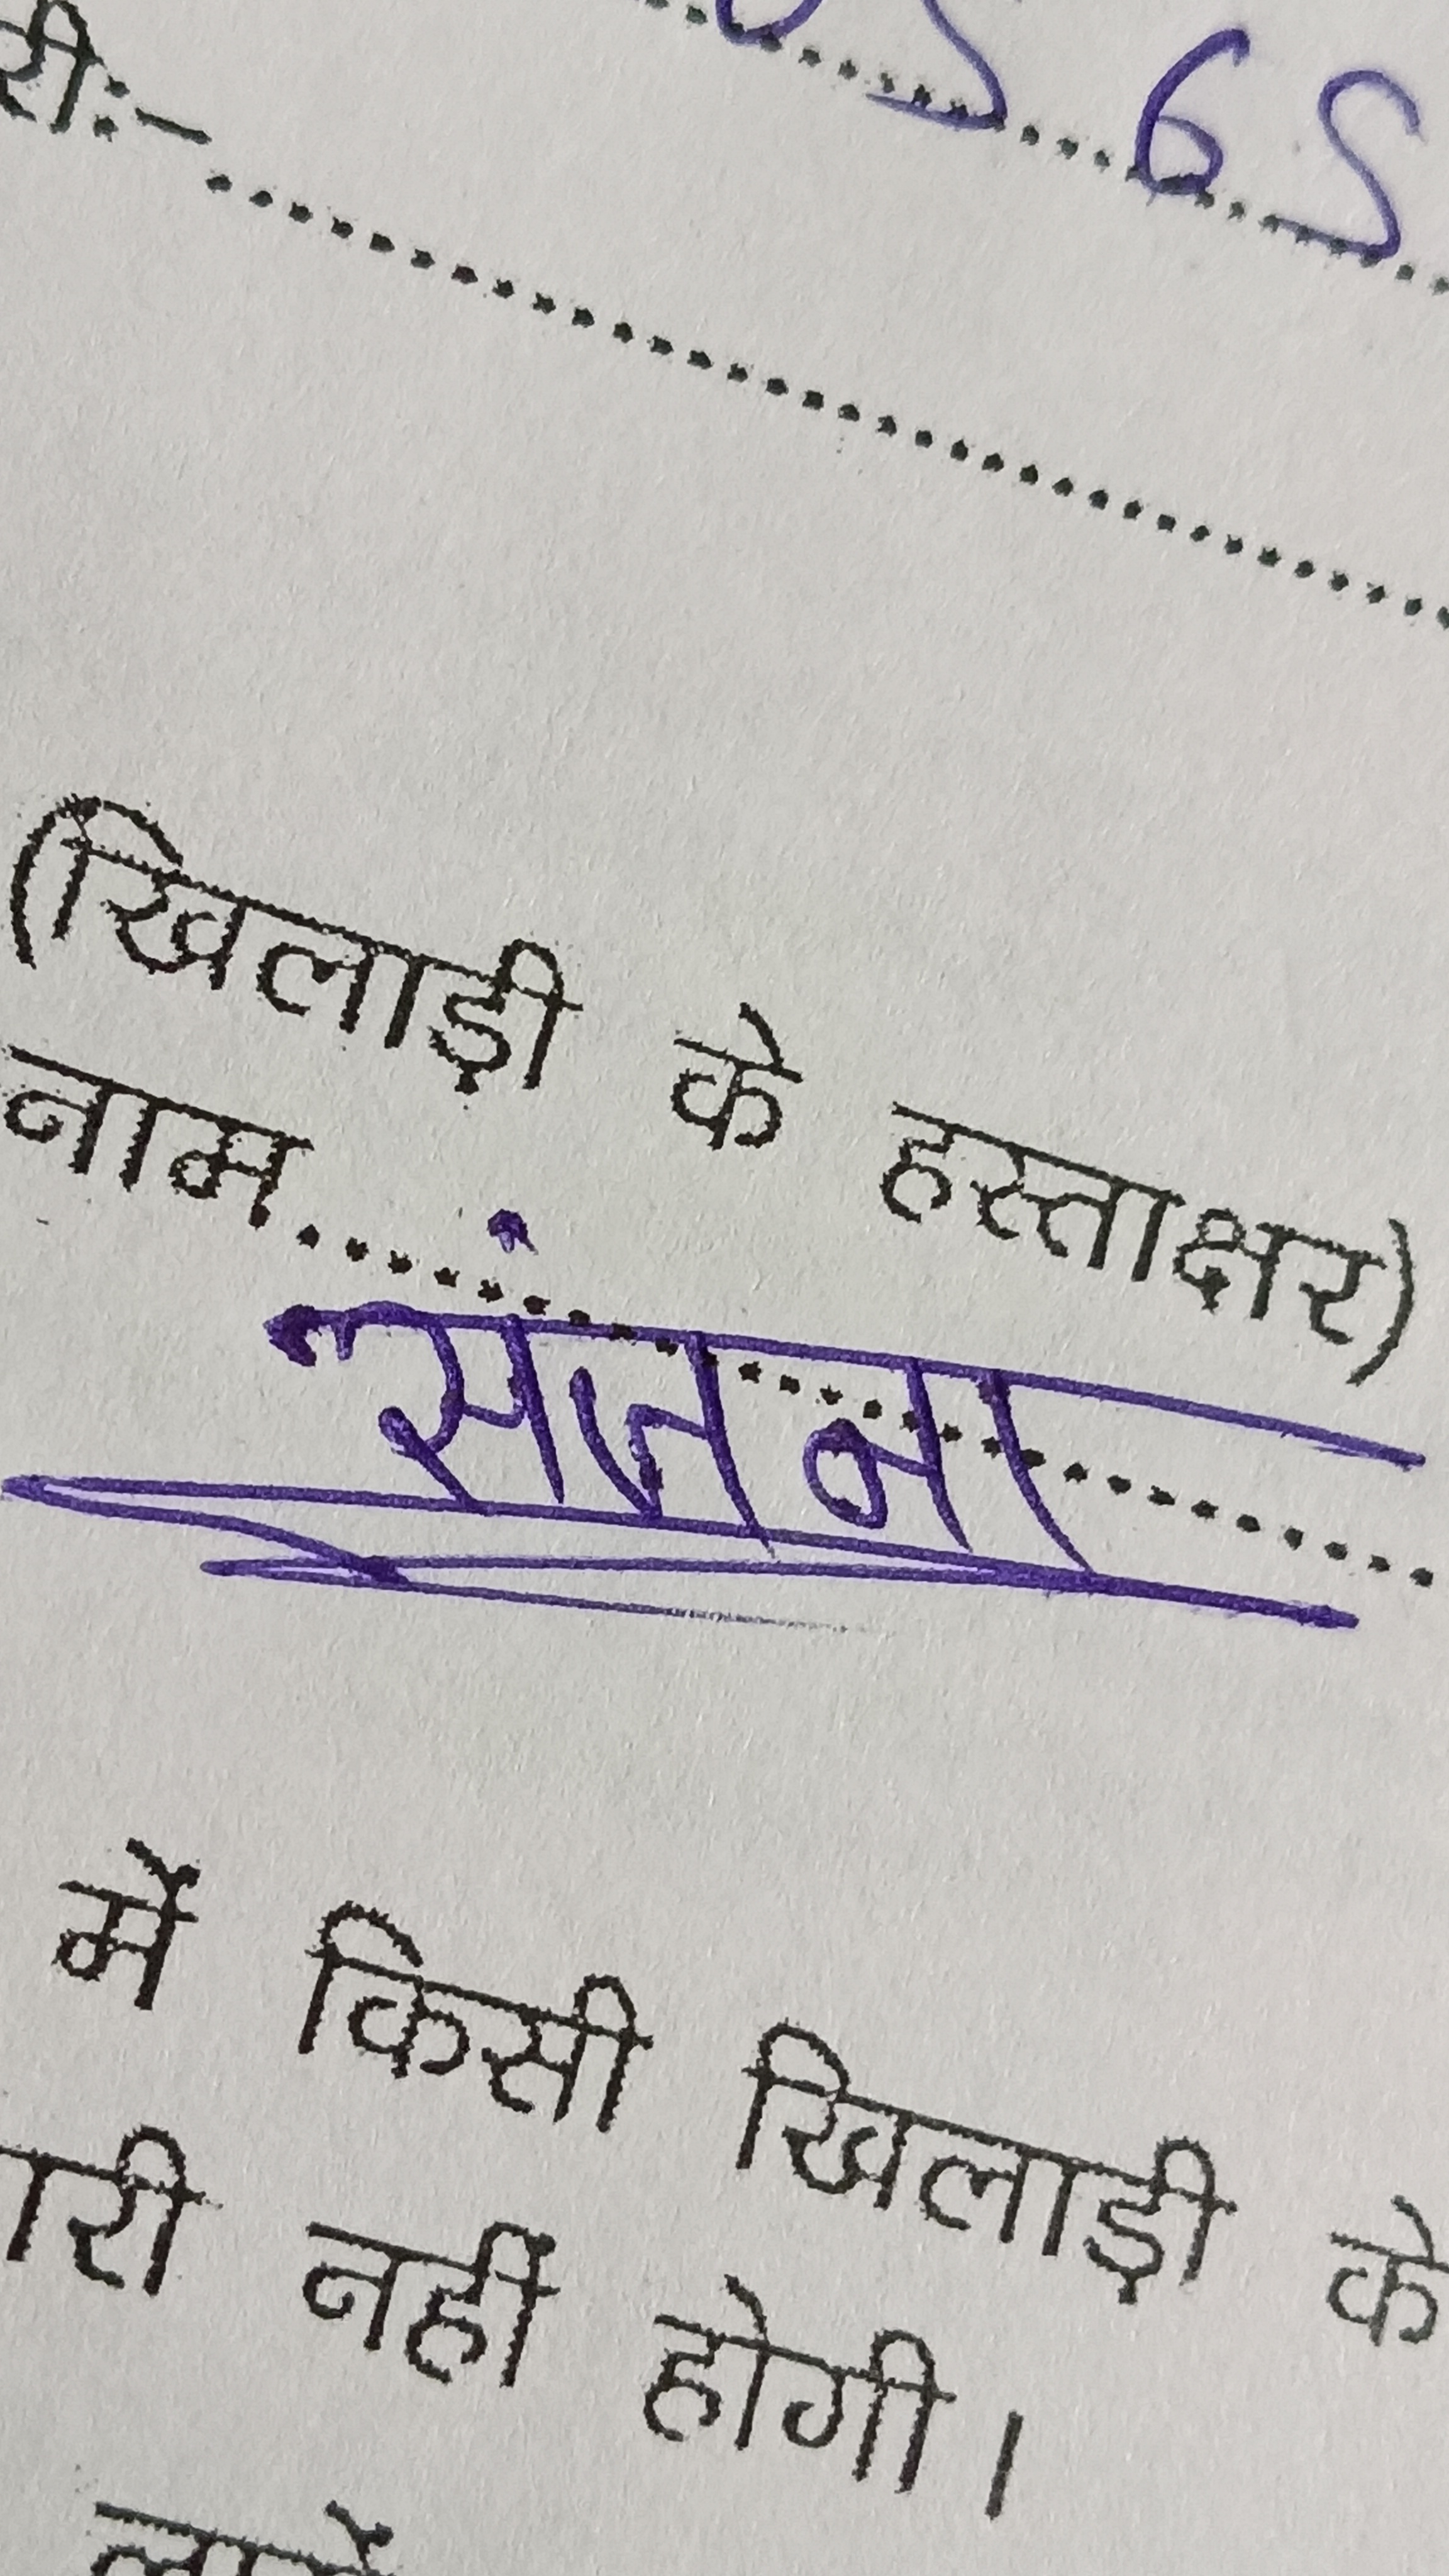 6 5
री:-
(खिलाड़ी के हस्ताक्षर)
नाम
संजना
में किसी खिलाड़ी के
ारी नहीं होगी।